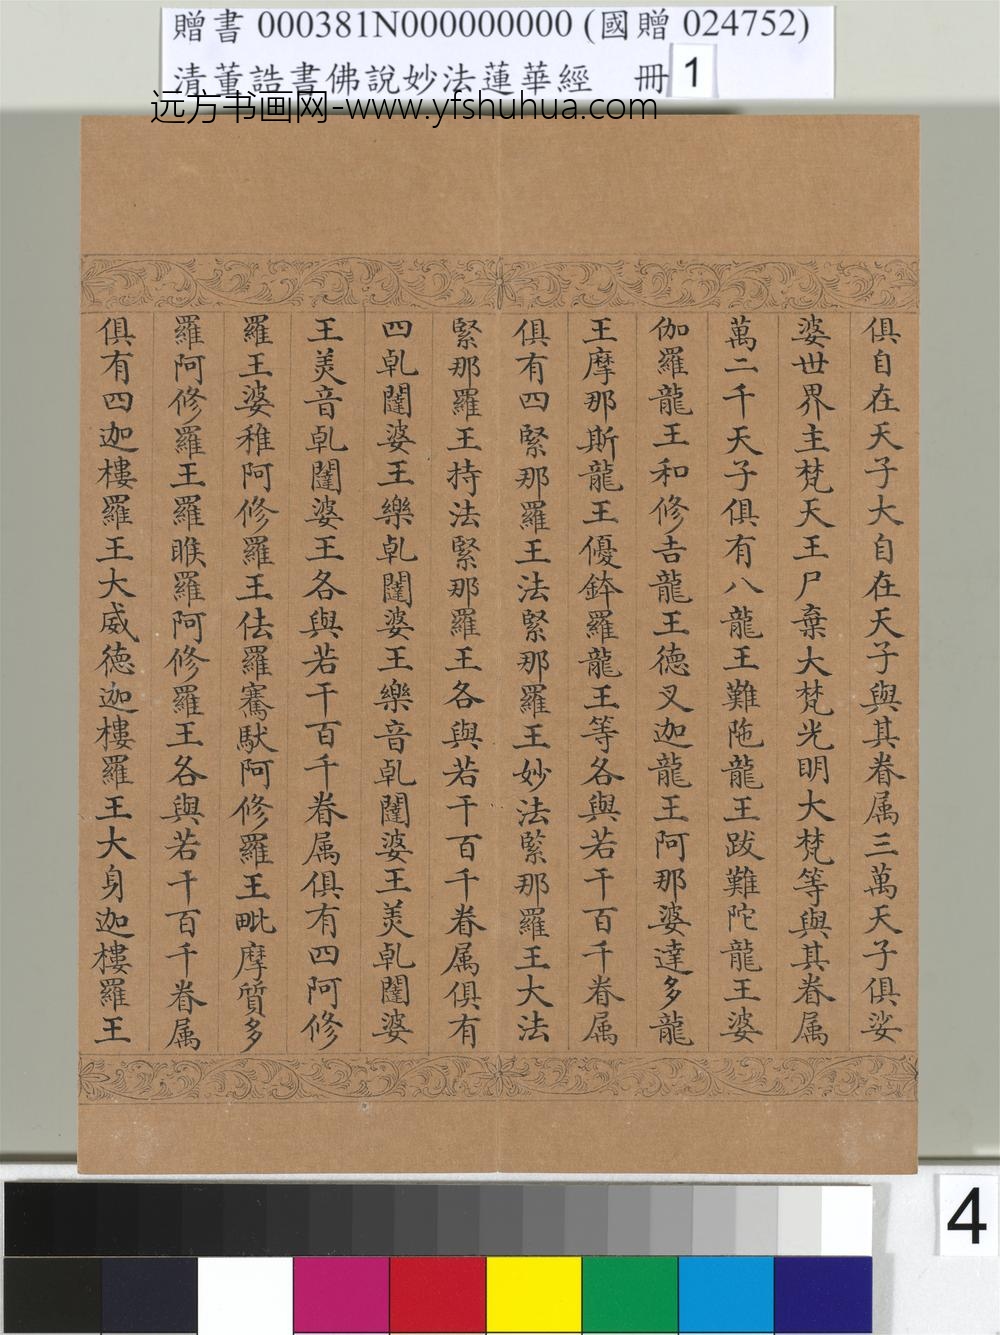 贈書 000381N000000000 (國贈 024752)
清董誥書佛說妙法蓮華經 冊 1
远方书画网-www.yfshuhua.com
俱自在天子大自在天子與其眷属三萬天子俱娑
婆世界主梵天王尸棄大梵光明大梵等與其眷属
萬二千天子俱有八龍王難陁龍王跋難陀龍王娑
伽羅龍王和修吉龍王德叉迦龍王阿那婆達多龍
王摩那斯龍王優鉢羅龍王等各與若干百千眷属
俱有四緊那羅王法緊那羅王妙法緊那羅王大法
緊那羅王持法緊那羅王各與若干百千眷属俱有
四乹闥婆王樂乹闥婆王樂音乹闥婆王美乹闥婆
王美音乹闥婆王各與若干百千眷属俱有四阿修
羅王婆稚阿修羅王佉羅騫馱阿修羅王毗摩質多
羅阿修羅王羅睺羅阿修羅王各與若干百千眷属
俱有四迦樓羅王大威德迦樓羅王大身迦樓羅王
4